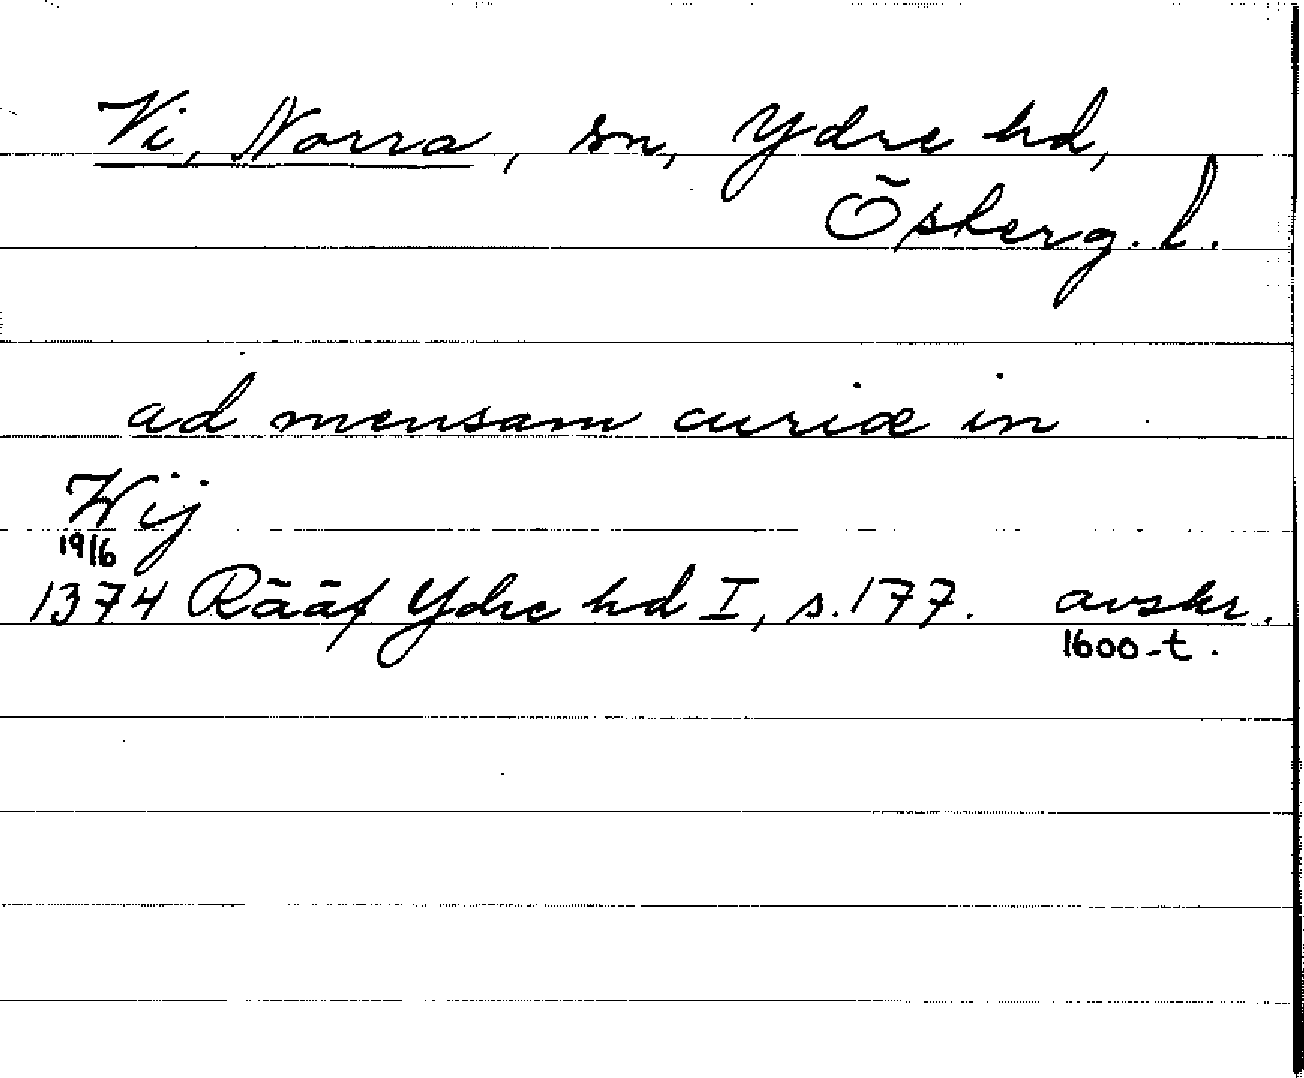 Vi, Norra, sn, Ydre hd,
Österg. l.
ad mensam curiæ in
Wij
19/6
1374 Rääf Ydre hd I, s. 177. avskr.
1600-t.